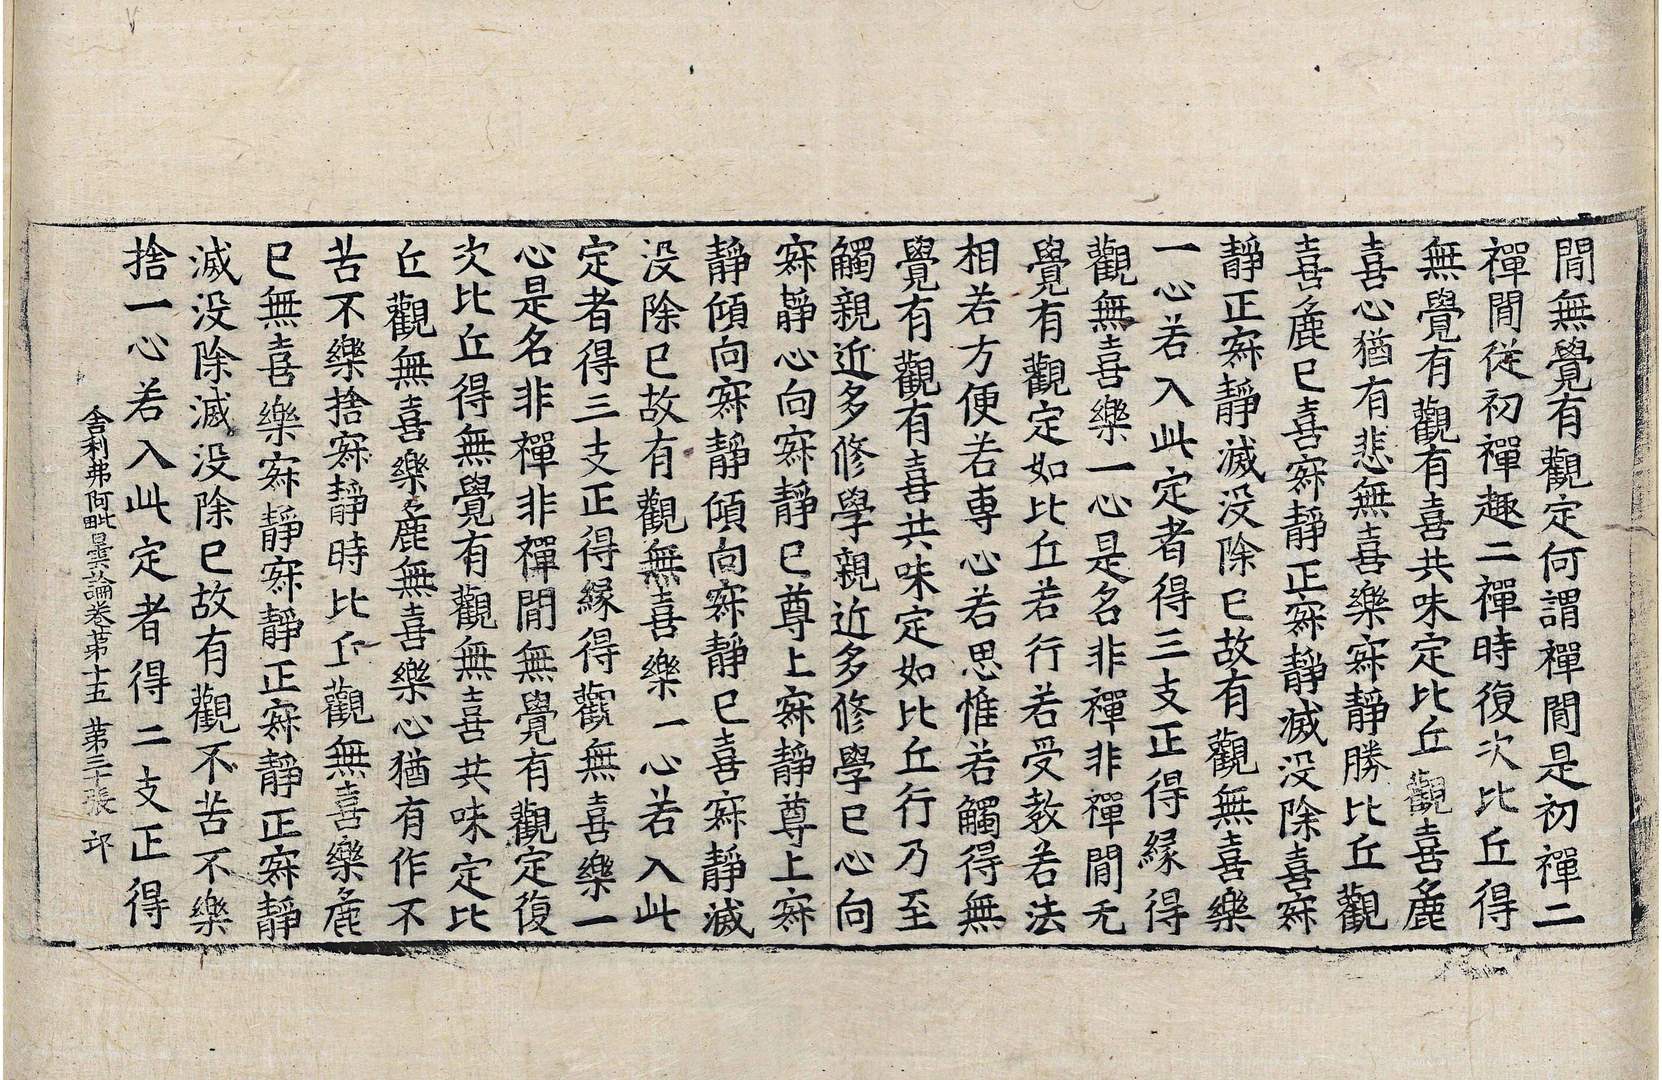 間無覺有觀定何謂禪間是初禪二
禪間從初禪趣二禪時復次比丘得
無覺有觀有喜共味定比丘觀喜麁
喜心猶有悲無喜樂寂靜勝比丘觀
喜麁已喜寂靜正寂靜滅没除喜寂
靜正寂靜滅没除已故有觀無喜樂
一心若入此定者得三支正得縁得
觀無喜樂一心是名非禪非禪間无
覺有觀定如比丘若行若受教若法
相若方便若専心若思惟若觸得無
覺有觀有喜共味定如比丘行乃至
觸親近多修學親近多修學已心向
寂靜心向寂靜已尊上寂靜尊上寂
靜傾向寂靜傾向寂靜已喜寂靜滅
没除已故有觀無喜樂一心若入此
定者得三支正得縁得觀無喜樂一
心是名非禪非禪間無覺有觀定復
次比丘得無覺有觀無喜共味定比
丘觀無喜樂麁無喜樂心猶有作不
苦不樂捨寂靜時比丘觀無喜樂麁
已無喜樂寂靜寂靜正寂靜正寂靜
滅没除滅没除已故有觀不苦不樂
捨一心若入此定者得二支正得
舍利弗阿毗曇論卷苐十五 苐三十張 邙